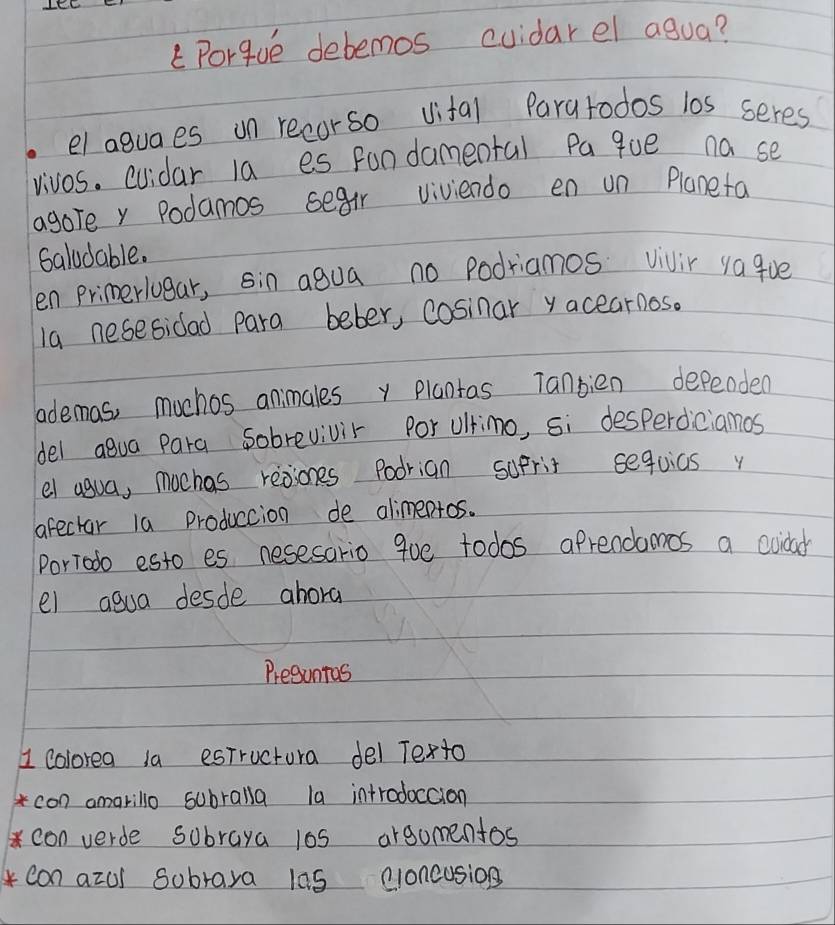 ¿Porqué debemos cuidar el agua?
• el agua es un recurso vital Para todos los seres
vivos. cuidar la es fundamental Pa que na se
agote y Podamos segir viviendo en un Planeta
Saludable.
en Primer lugar, sin agua no Podriamos vivir ya que
la nesesidad Para beber, cosinar y acearnos.
ademas, muchos animales y Plantas Tanbien dependen
del agua Para Sobrevivir Por ultimo, si desperdiciamos
el agua, muchas regiones Podrian sufrir sequias y
afectar la Produccion de alimentos.
Por Todo esto es nesesario que todos aprendamos a cuidar
el agua desde ahora
Preguntas
1 Colorea la esTructura del Texto
* con amarillo subralla la introduccion
* con verde Subraya los argumentos
* con azul Subraya las cloncusion